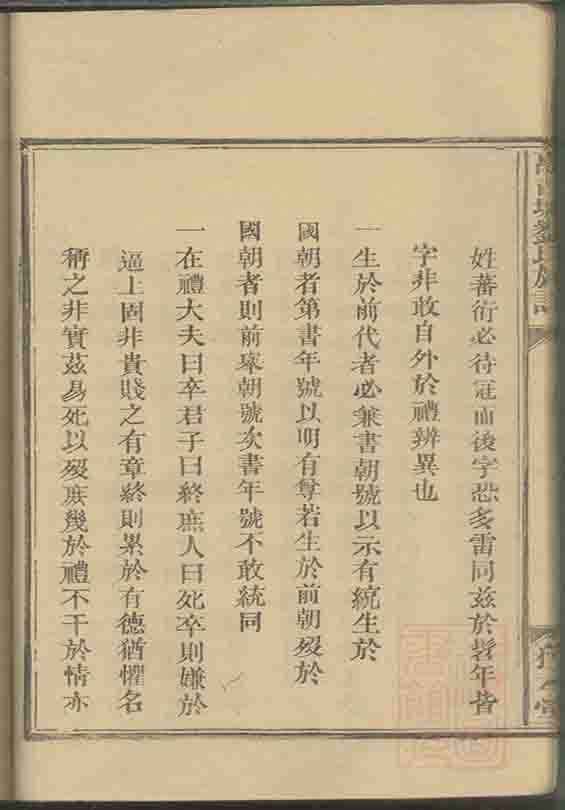 姓蕃衍必待冠而後字恐多雷同茲於髫年皆
字非敢自外於禮辨異也
一生於前代者必兼書朝號以示有統生於
國朝者第書年號以明有尊若生於前朝歿於
國朝者則前章朝號次書年號不敢統同
一在禮大夫曰卒君子曰終庶人曰死卒則嫌於
逼上固非貴賤之有章終則累於有德猶懼名
稱之非實茲易死以歿庶幾於禮不干於情亦
劉氏族譜